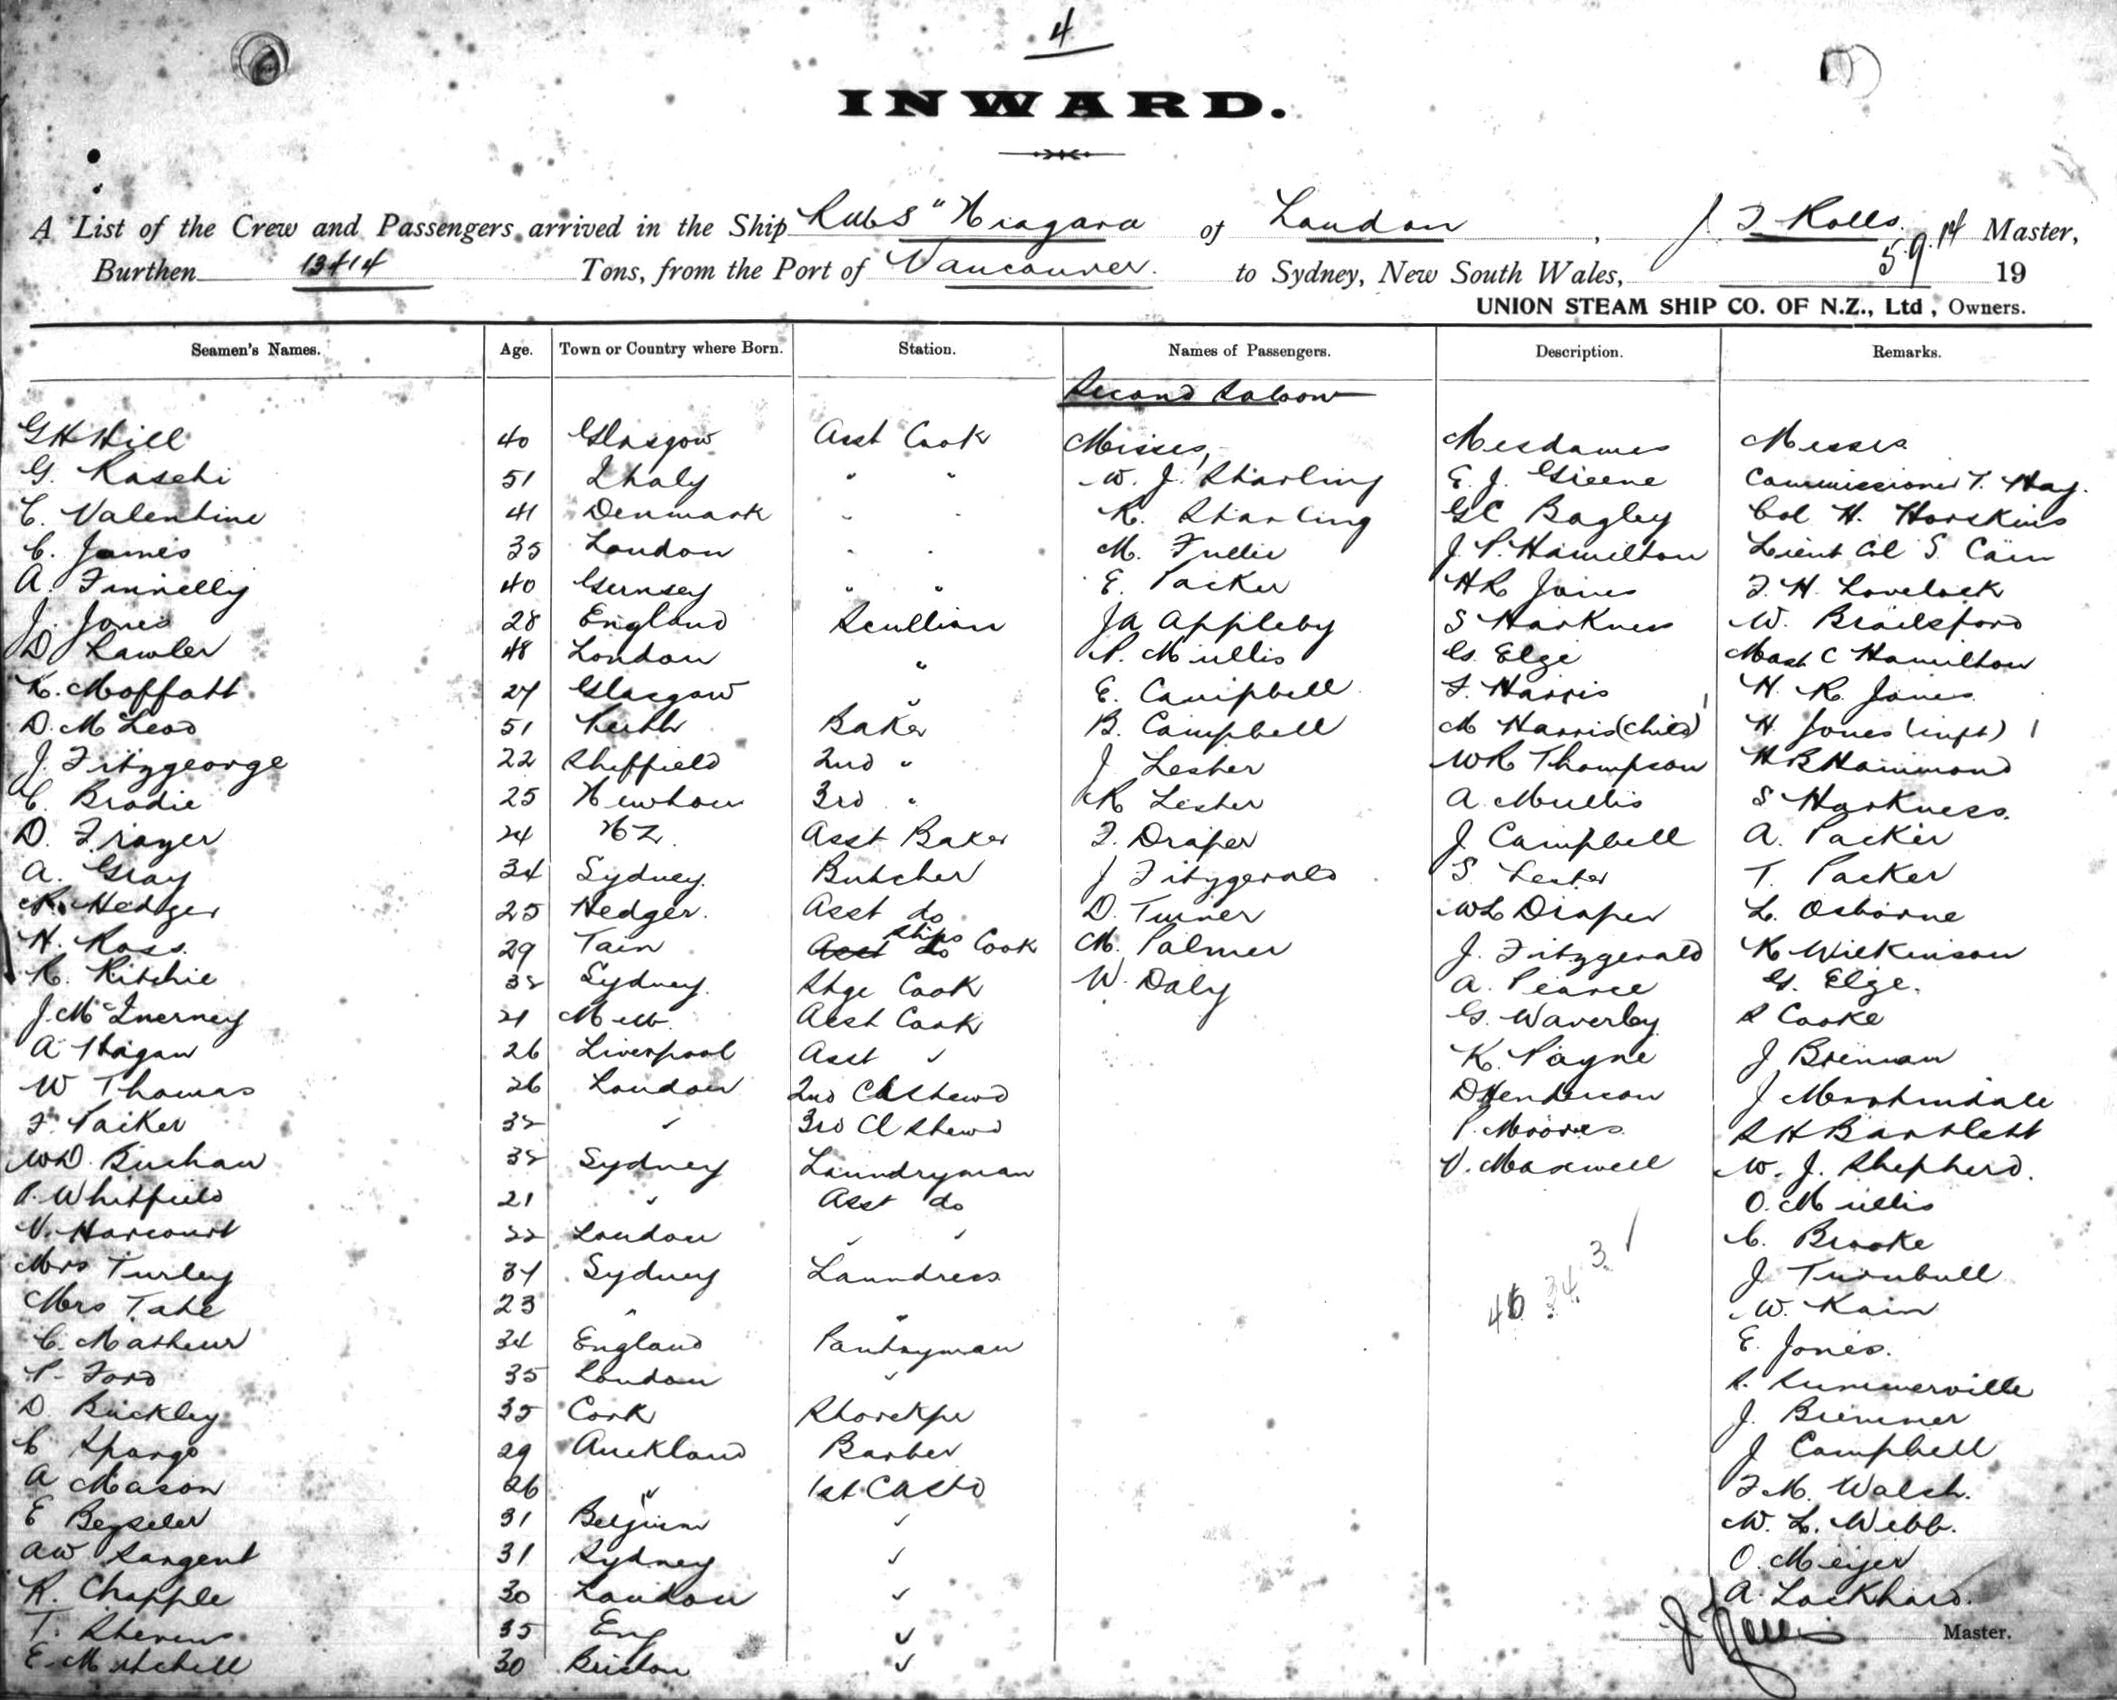 4
INWARD.
A List of the Crew and Passengers arrived in the Ship RMS "Niagara of London, J. F Rolls. Master,
Burthen 13414 Tons, from the Port of Vancouver. to Sydney, New South Wales, 5.9.14 19
UNION STEAM SHIP CO. OF N.Z., Ltd, Owners.
Seamen's Names. Age. Town or Country where Born. Station. Names of Passengers. Description. Remarks.
Second Saloon
G H Hill 40 Glasgow Asst Cook Misses, Mesdames Messrs
G. Raschi 51 Italy " " W. J. Starling E. J. Greene Commissioner T. Hay.
C. Valentine 41 Denmark " " K. Starling G C Bagley Col H. Horskins
C. James 35 London " " M. Fuller J. P. Hamilton Lieut Col S. Cain
A. Finnelly 40 Gernsey " " E. Packer H R Jones F. H. Lovelock
J. Jones 28 England Scullion J A Appleby S Harkness W. Brailsford
D Lawler 48 London " P. Mullis G. Elge Mast C Hamilton
K. Moffatt 27 Glasgow " E. Campbell F. Harris H. R. Jones
D. McLeod 51 Keith Baker B. Campbell M Harris (child) 1 H. Jones (inft) 1
J. Fitzgeorge 22 Sheffield 2nd " J Lester W R Thompson H B Hammond
C. Brodie 25 Newhaven 3rd " K Lester A. Mullis S Harkness.
D. Frazer 24 NZ. Asst Baker F. Draper J Campbell A. Packer
A. Gray 34 Sydney. Butcher J Fitzgerald S. Lester T. Packer
R. Hedger 25 Hedger. Asst do D. Turner W L Draper L. Osborne
H. Ross. 29 Tain Asst do Ships Cook M. Palmer J. Fitzgerald K Wilkinson
R. Ritchie 32 Sydney. Stge Cook W. Daly A. Pearce G. Elge.
J. McInerney 21 Melb. Asst Cook G. Waverley S Cooke
A Hagan 26 Liverpool Asst " K. Payne J Brennan
W Thomas 26 London 2nd Cl Stewd D Henderson J Martindale
F. Packer 32 " 3rd Cl Stewd P. Moores R H Bartlett
W D. Buchan 32 Sydney Laundryman V. Maxwell W. J. Shepherd.
P. Whitfield 21 " Asst do O. Mullis
V. Harcourt 22 London " " C. Brooke
Mrs Turley 37 Sydney Laundress J Turnbull
Mrs Tate 23 " " W. Kain
46 34. 3. ✓
C. Mathew 34 England Pantryman E. Jones.
P. Ford 35 London " S. Summerville
D Buckley 35 Cork Storekpr J. Bremner
C Spargo 29 Auckland Barber J Campbell
A Mason 26 " 1st Cl Astd F M. Walsh.
E Beyseler 31 Belgium " W. L. Webb.
A W Sargent 31 Sydney " O. Meijer
R. Chapple 30 London " A. Lockhard.
T. Stevens 35 Eng "
Master.
E. Mitchell 30 Briston "